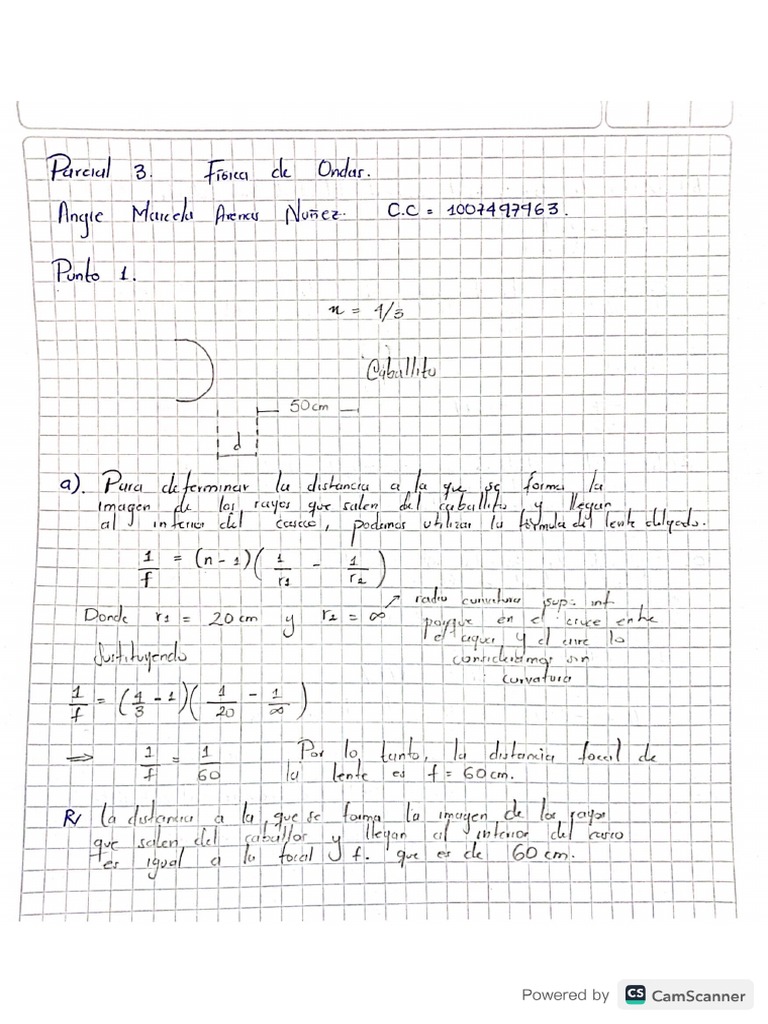 Parcial 3. Física de Ondas.
Angie Marcela Arenas Nuñez. C.C = 1007497963.
Punto 1.
n = 4/3
Caballito
50cm
d
a). Para determinar la distancia a la que se forma la
imagen de los rayos que salen del caballito y llegan
al interior del casco, podemos utilizar la fórmula del lente delgado.
1/f = (n - 1)(1/r1 - 1/r2)
Donde r1 = 20cm y r2 = ∞ → radio curvatura sup. inf
porque en el cruce entre
el agua y el aire lo
consideramos sin
curvatura
Sustituyendo
1/f = (4/3 - 1)(1/20 - 1/∞)
⇒ 1/f = 1/60 Por lo tanto, la distancia focal de
la lente es f = 60cm.
R/ La distancia a la que se forma la imagen de los rayos
que salen del caballos y llegan al interior del casco
es igual a la focal f. que es de 60cm.
Powered by CS CamScanner